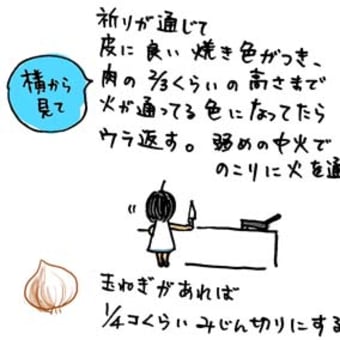 祈りが通じて
皮に良い焼き色がつき、
肉の2/3くらいの高さまで
火が通ってる色になってたら
ウラ返す。弱めの中火で
のこりに火を通
横から
見て
玉ねぎがあれば
1/4コくらいみじん切りにする